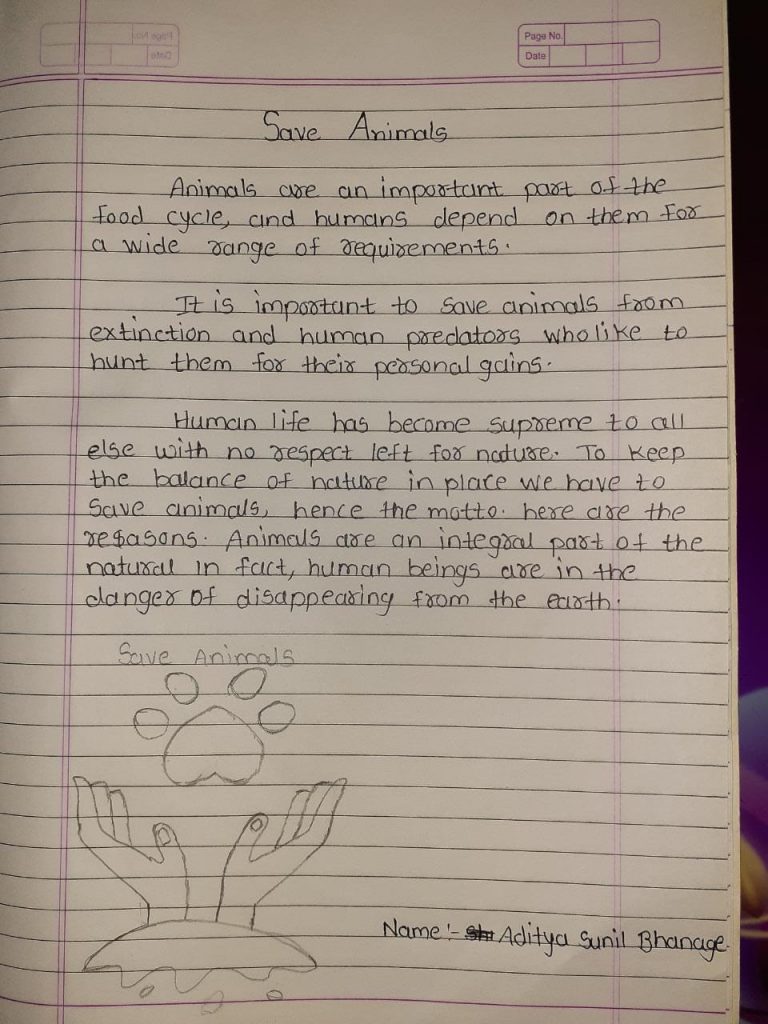 Page No.
Date
Save Animals
Animals are an important part of the
food cycle, and humans depend on them for
a wide range of requirements.
It is important to save animals from
extinction and human predators who like to
hunt them for their personal gains.
Human life has become supreme to all
else with no respect left for nature. To keep
the balance of nature in place we have to
save animals, hence the motto. here are the
resasons. Animals are an integral part of the
natural in fact, human beings are in the
danger of disappearing from the earth.
Save Animals
Name :- Aditya Sunil Bhanage